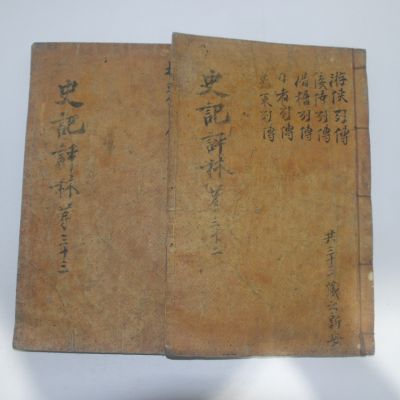 游俠列傳
佞倖列傳
滑稽列傳
日者列傳
龜策列傳
共三十二
史記評林苐三十二
史記評林苐三十三